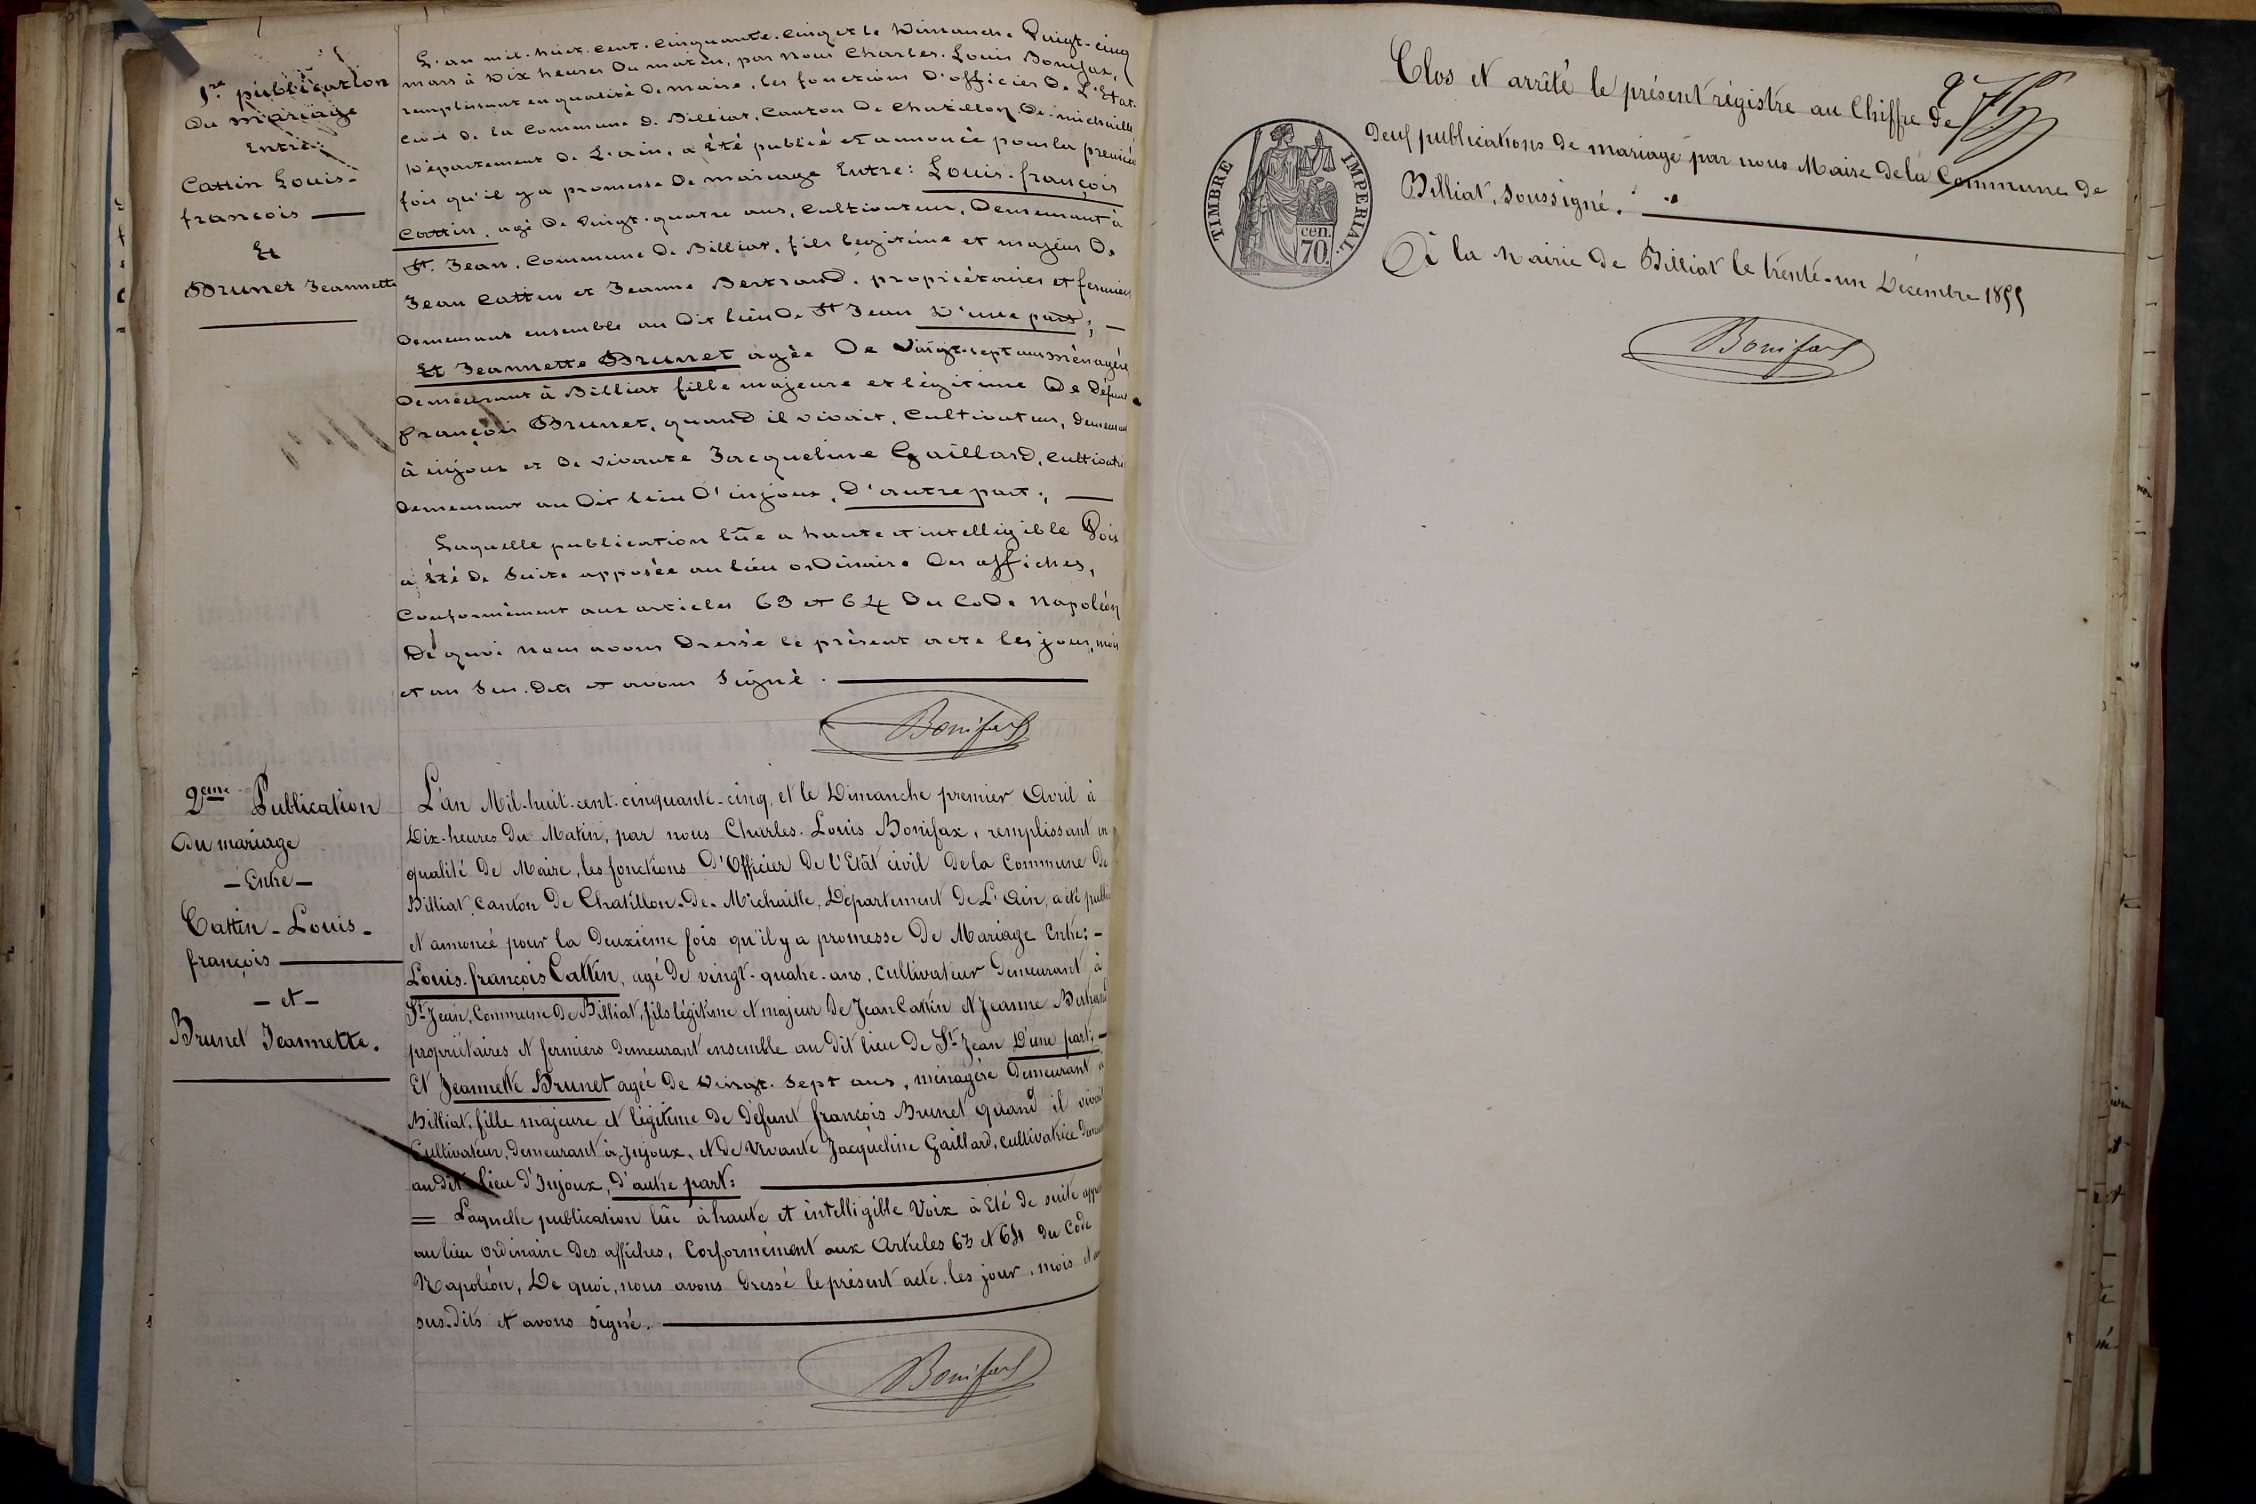 1re publication
Du mariage
Entre:
Cattin Louis-
françois
Et
Brunet Jeannette
L'an mil-huit-cent-cinquante-cinq et le Dimanche Vingt-cinq
mars à Dix heures Du matin, par nous Charles-Louis Bonifax,
remplissant en qualité De maire, les fonctions D'officier De L'Etat-
civil de la Commune De Billiat, Canton De Chatillon-De-michaille
Département De L'ain, a été publié et annoncé pour la première
fois qu'il y a promesse De mariage Entre: Louis-françois
Cattin, agé De Vingt-quatre ans, Cultivateur, Demeurant à
St. Jean, Commune de Billiat, fils légitime et majeur De
Jean Cattin et Jeanne Bertrand, propriétaires et fermiers
Demeurant ensemble au Dit lieu De St Jean D'une part;
Et Jeannette Brunet agée De Vingt-sept ans ménagère
Demeurant à Billiat fille majeure et légitime De Défunt
françois Brunet, quand il vivait, Cultivateur, Demeurant
à injoux et De vivante Jacqueline Gaillard, cultivatrice
Demeurant au Dit lieu D'injoux, D'autre part;
Laquelle publication lûe a haute et intelligible Voix
a été De Suite apposée au lieu ordinaire Des affiches,
Conformément aux articles 63 et 64 Du Code Napoléon
De quoi nous avons Dressé le présent acte les jour, mois
et an Sus-Dits et avons Signé.
Bonifax
2eme Publication
Du mariage
- Entre -
Cattin - Louis -
françois
- et -
Brunet Jeannette.
L'an Mil-huit-cent-cinquante-cinq, et le Dimanche premier Avril à
Dix-heures Du Matin, par nous Charles-Louis Bonifax, remplissant en
qualité De Maire, les fonctions D'Officier De l'Etât civil De la Commune De
Billiat, Canton De Chatillon-De-Michaille, Département De L'Ain, a été publié
et annoncé pour la Deuxième fois qu'il y a promesse De Mariage Entre: -
Louis-françois Cattin, agé De vingt-quatre-ans, Cultivateur Demeurant à
St Jean, Commune De Billiat, fils légitime et majeur De Jean Cattin et Jeanne Bertrand
propriétaires et fermiers Demeurant ensemble au dit lieu De St Jean D'une part; -
Et Jeannette Brunet agée De Vingt-Sept ans, ménagère Demeurant à
Billiat, fille majeure et légitime De Défunt françois Brunet quand il vivait
Cultivateur, Demeurant à Injoux, et De Vivante Jacquéline Gaillard, cultivatrice
au dit lieu d'Injoux, d'autre part:
= Laquelle publication lûe à haute et intelligible Voix à Eté De suite
au lieu Ordinaire Des affiches, Conformément aux Articles 63 et 64 Du Code
Napoléon, De quoi, nous avons Dressé le présent acte, les jour, mois et an
sus-dits et avons signé.
Bonifax
Clos et arrêté le présent régistre au Chiffre de
Deux publications de mariage par nous Maire de la Commune de
Billiat, soussigné.
TIMBRE IMPERIAL.
cen.
70.
A la Mairie de Billiat le trente-un Décembre 1855
Bonifax